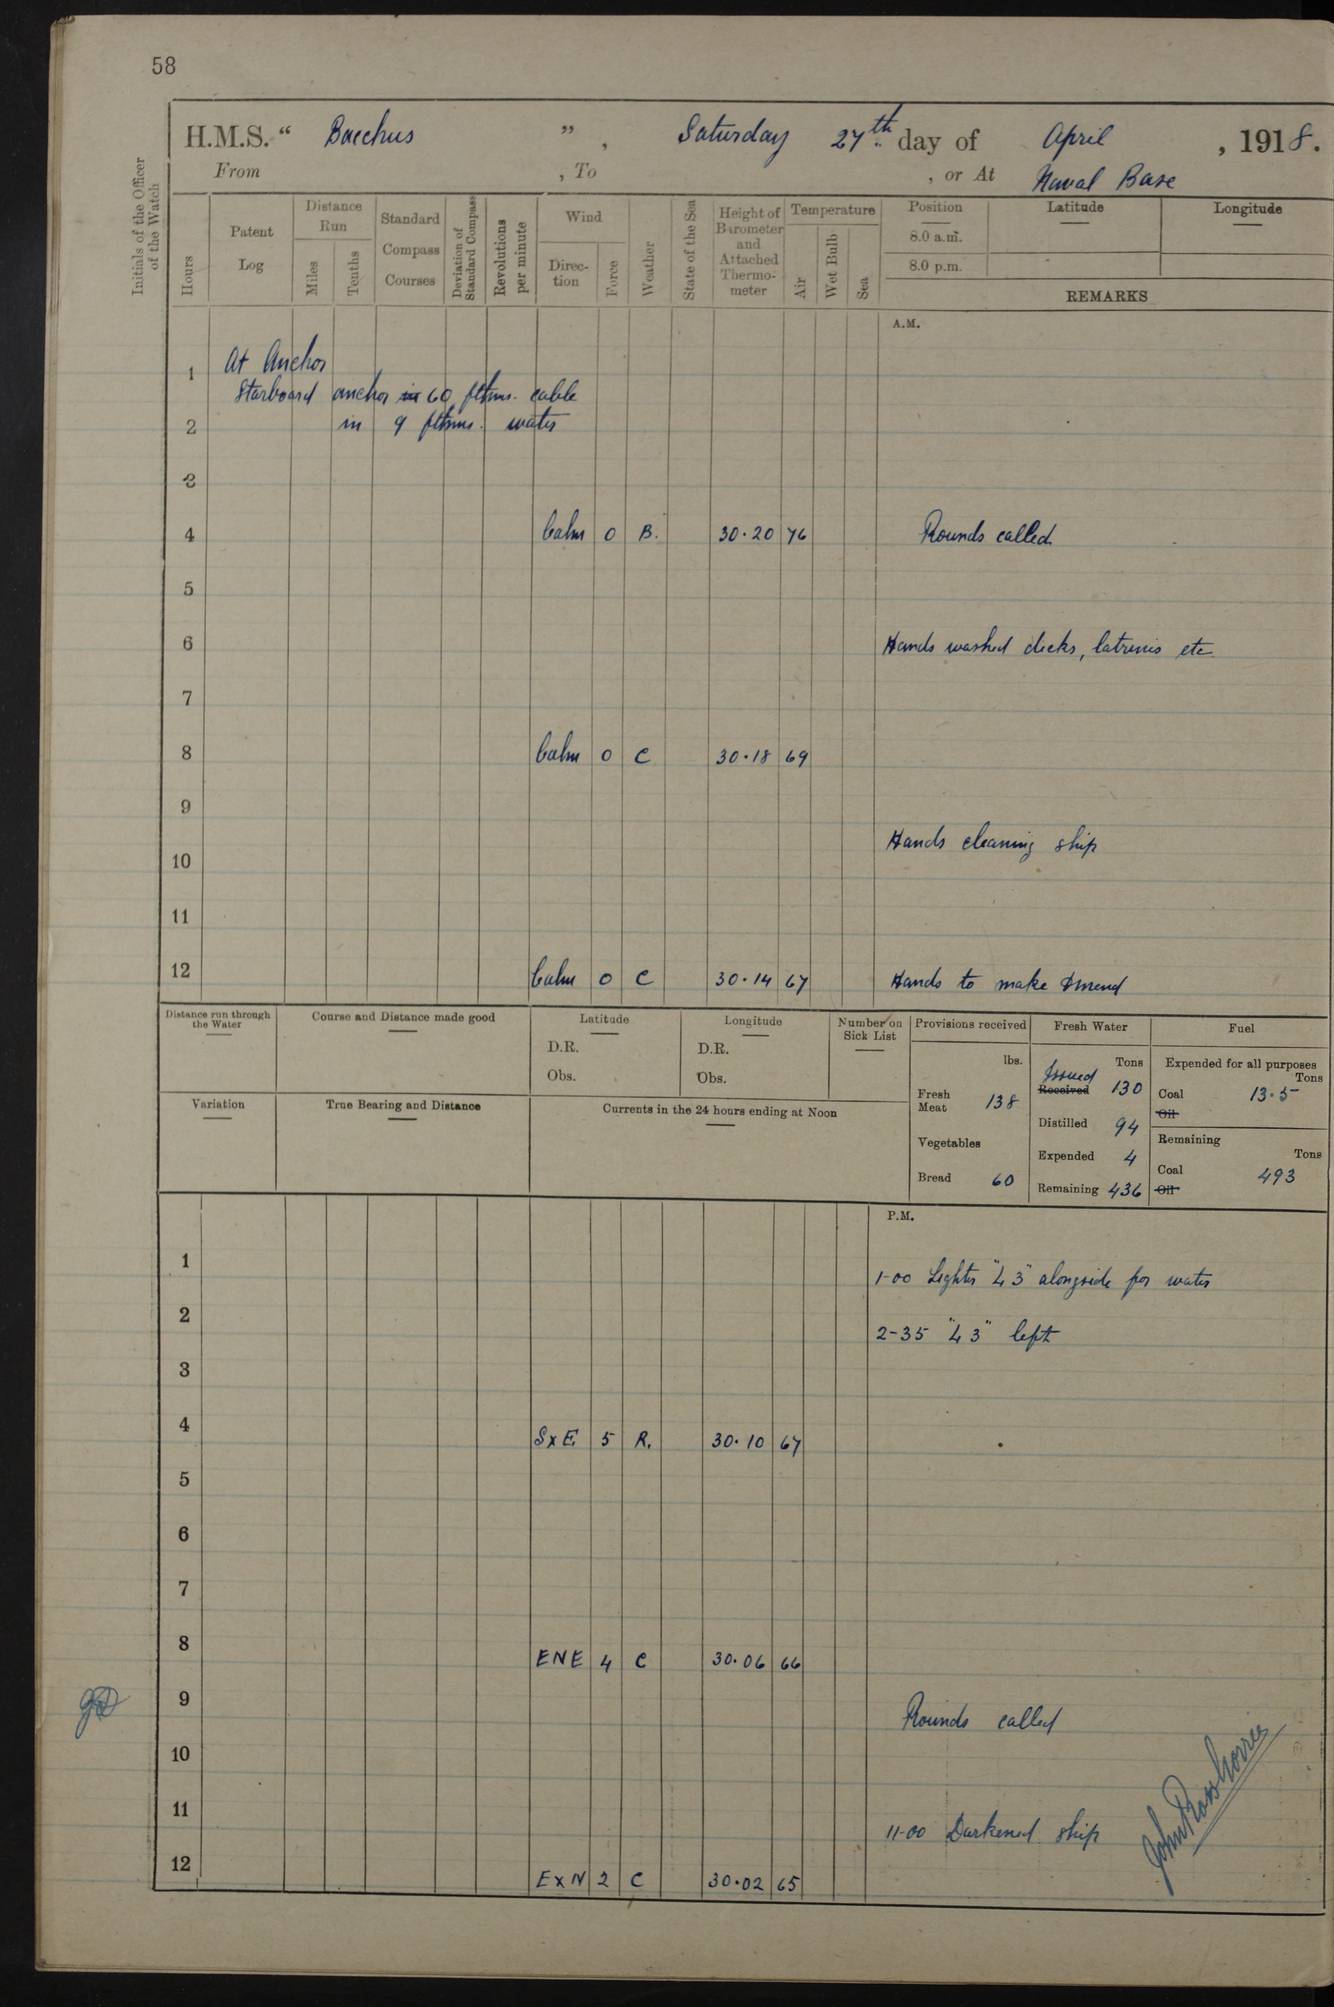 58
H.M.S. “ Bacchus ”, Saturday 27th day of April, 1918.
From , To , or At Naval Base
Initials of the Officer of the Watch
Hours
Patent Log
Distance Run
Miles
Tenths
Standard Compass Courses
Deviation of Standard Compass
Revolutions per minute
Wind
Direc-tion
Force
Weather
State of the Sea
Height of Barometer and Attached Thermo-meter
Temperature
Air
Wet Bulb
Sea
Position
Latitude
Longitude
8.0 a.m.
8.0 p.m.
REMARKS
A.M.
At Anchor
1
Starboard anchor in 60 fthms. cable
2 in 9 fthms. water
3
4 Calm 0 B. 30.20 76 Rounds called.
5
6 Hands washed decks, latrines etc
7
8 Calm 0 C 30.18 69
9
Hands cleaning ship
10
11
12 Calm 0 C 30.14 67 Hands to make & mend
Distance run through the Water
Course and Distance made good
Latitude
D.R.
Obs.
Longitude
D.R.
Obs.
Number on Sick List
Provisions received
lbs.
Fresh Meat 138
Vegetables
Bread 60
Fresh Water
Tons
Issued
Received 130
Distilled 94
Expended 4
Remaining 436
Fuel
Expended for all purposes
Tons
Coal 13.5
Oil
Remaining
Tons
Coal 493
Oil
Variation
True Bearing and Distance
Currents in the 24 hours ending at Noon
P.M.
1 1-00 Lighter "L3" alongside for water
2 2-35 "L3" left
3
4 SxE 5 R. 30.10 67
5
6
7
8 ENE 4 C 30.06 66
9 Rounds called
10
11 11-00 Darkened ship
12 ExN 2 C 30.02 65